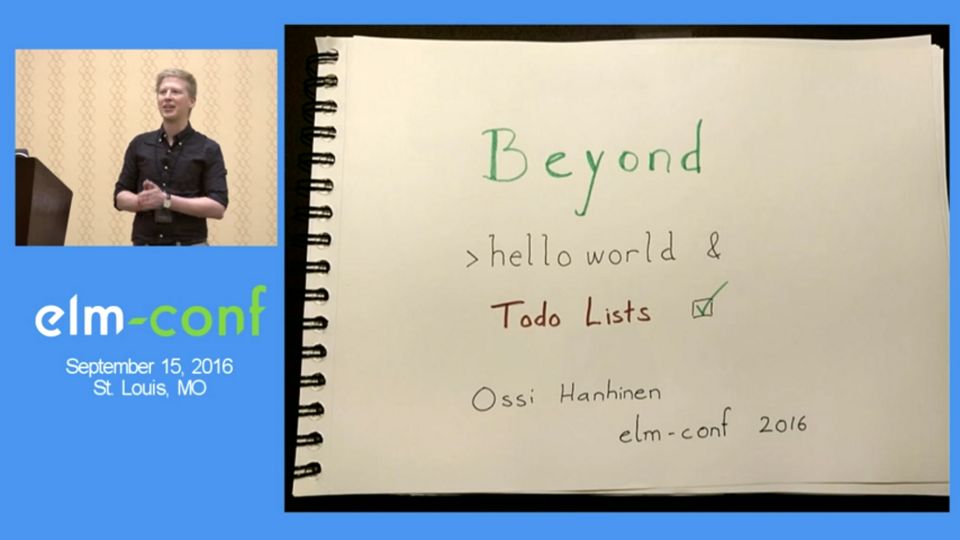 elm-conf
September 15, 2016
St. Louis, MO
Beyond
>hello world &
Todo Lists
Ossi Hanhinen
elm-conf 2016